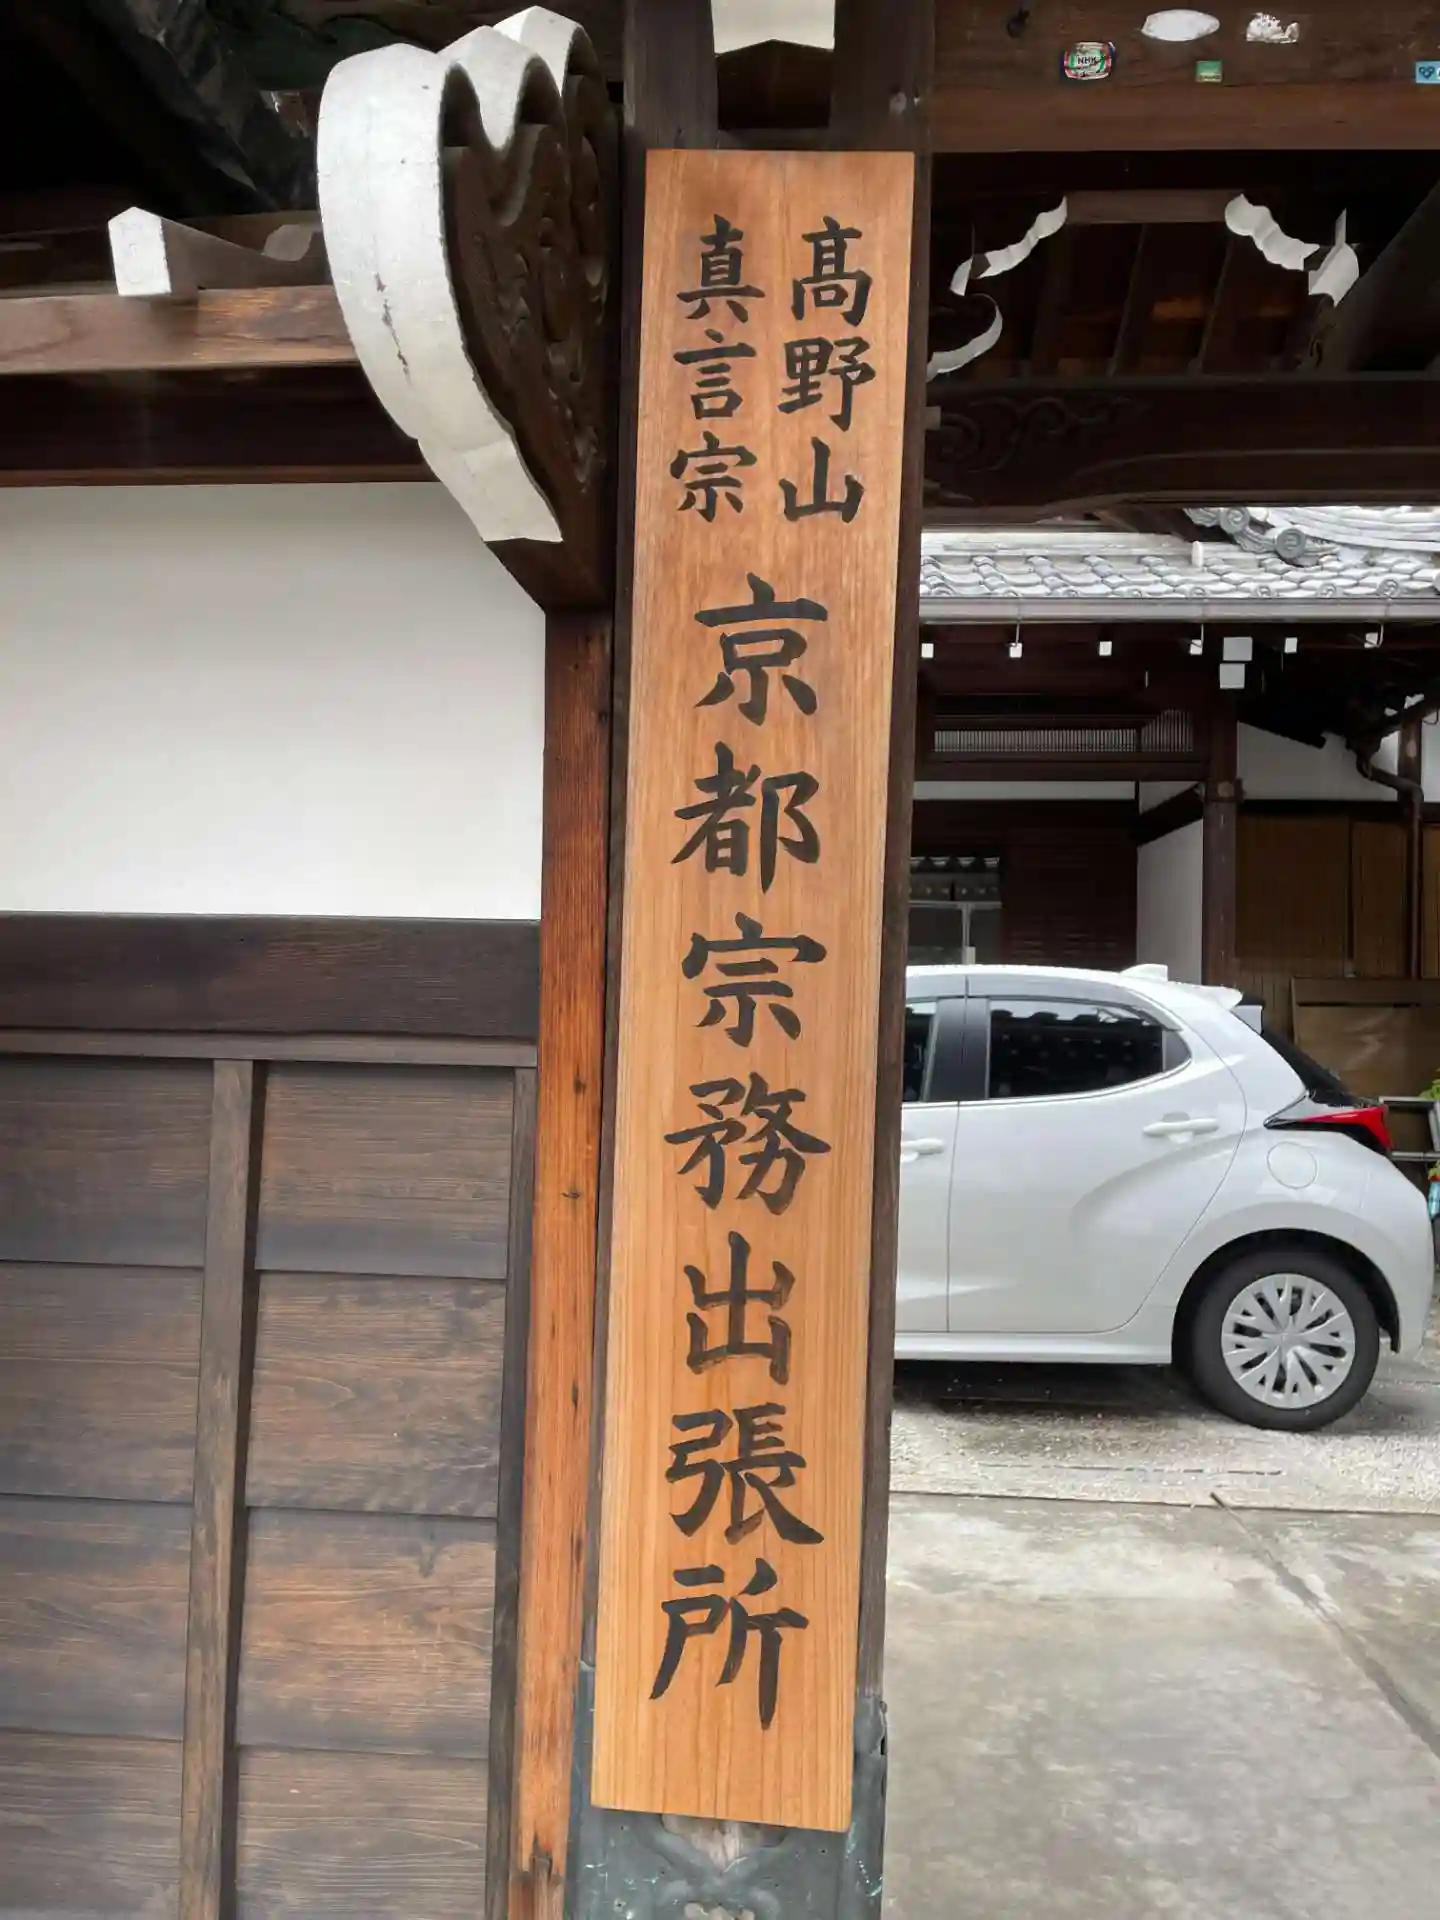 髙野山
真言宗
京都宗務出張所
NHK